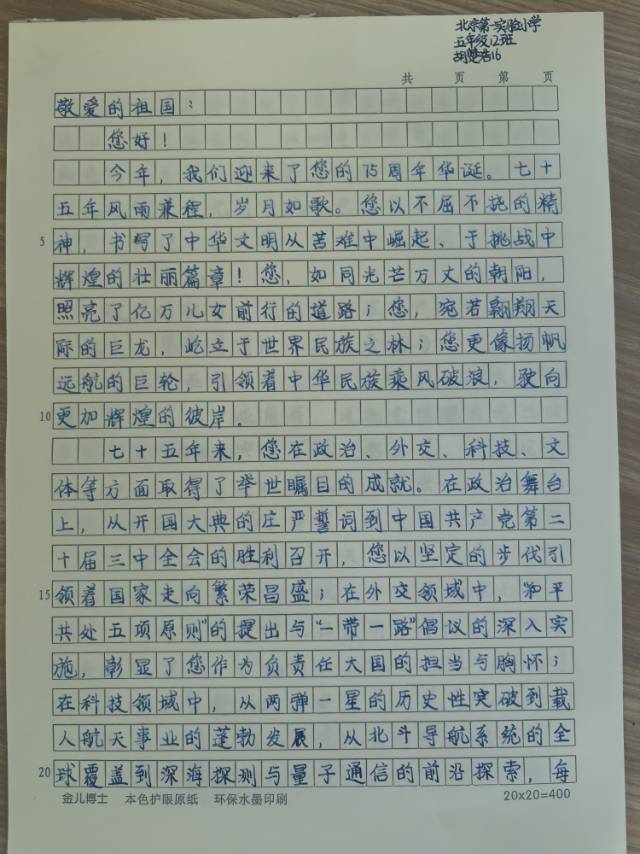 北京第一实验小学
五年级12班
胡楚浩16
共 页 第 页
敬爱的祖国：
您好！
今年，我们迎来了您的75周年华诞。七十
五年风雨兼程，岁月如歌。您以不屈不挠的精
5 神，书写了中华文明从苦难中崛起、于挑战中
辉煌的壮丽篇章！您，如同光芒万丈的朝阳，
照亮了亿万儿女前行的道路；您，宛若翱翔天
际的巨龙，屹立于世界民族之林；您更像扬帆
远航的巨轮，引领着中华民族乘风破浪，驶向
10 更加辉煌的彼岸。
七十五年来，您在政治、外交、科技、文
体等方面取得了举世瞩目的成就。在政治舞台
上，从开国大典的庄严誓词到中国共产党第二
十届三中全会的胜利召开，您以坚定的步伐引
15 领着国家走向繁荣昌盛；在外交领域中，“和平
共处五项原则”的提出与“一带一路”倡议的深入实
施，彰显了您作为负责任大国的担当与胸怀；
在科技领域中，从两弹一星的历史性突破到载
人航天事业的蓬勃发展，从北斗导航系统的全
20 球覆盖到深海探测与量子通信的前沿探索，每
金儿博士 本色护眼原纸 环保水墨印刷 20×20=400